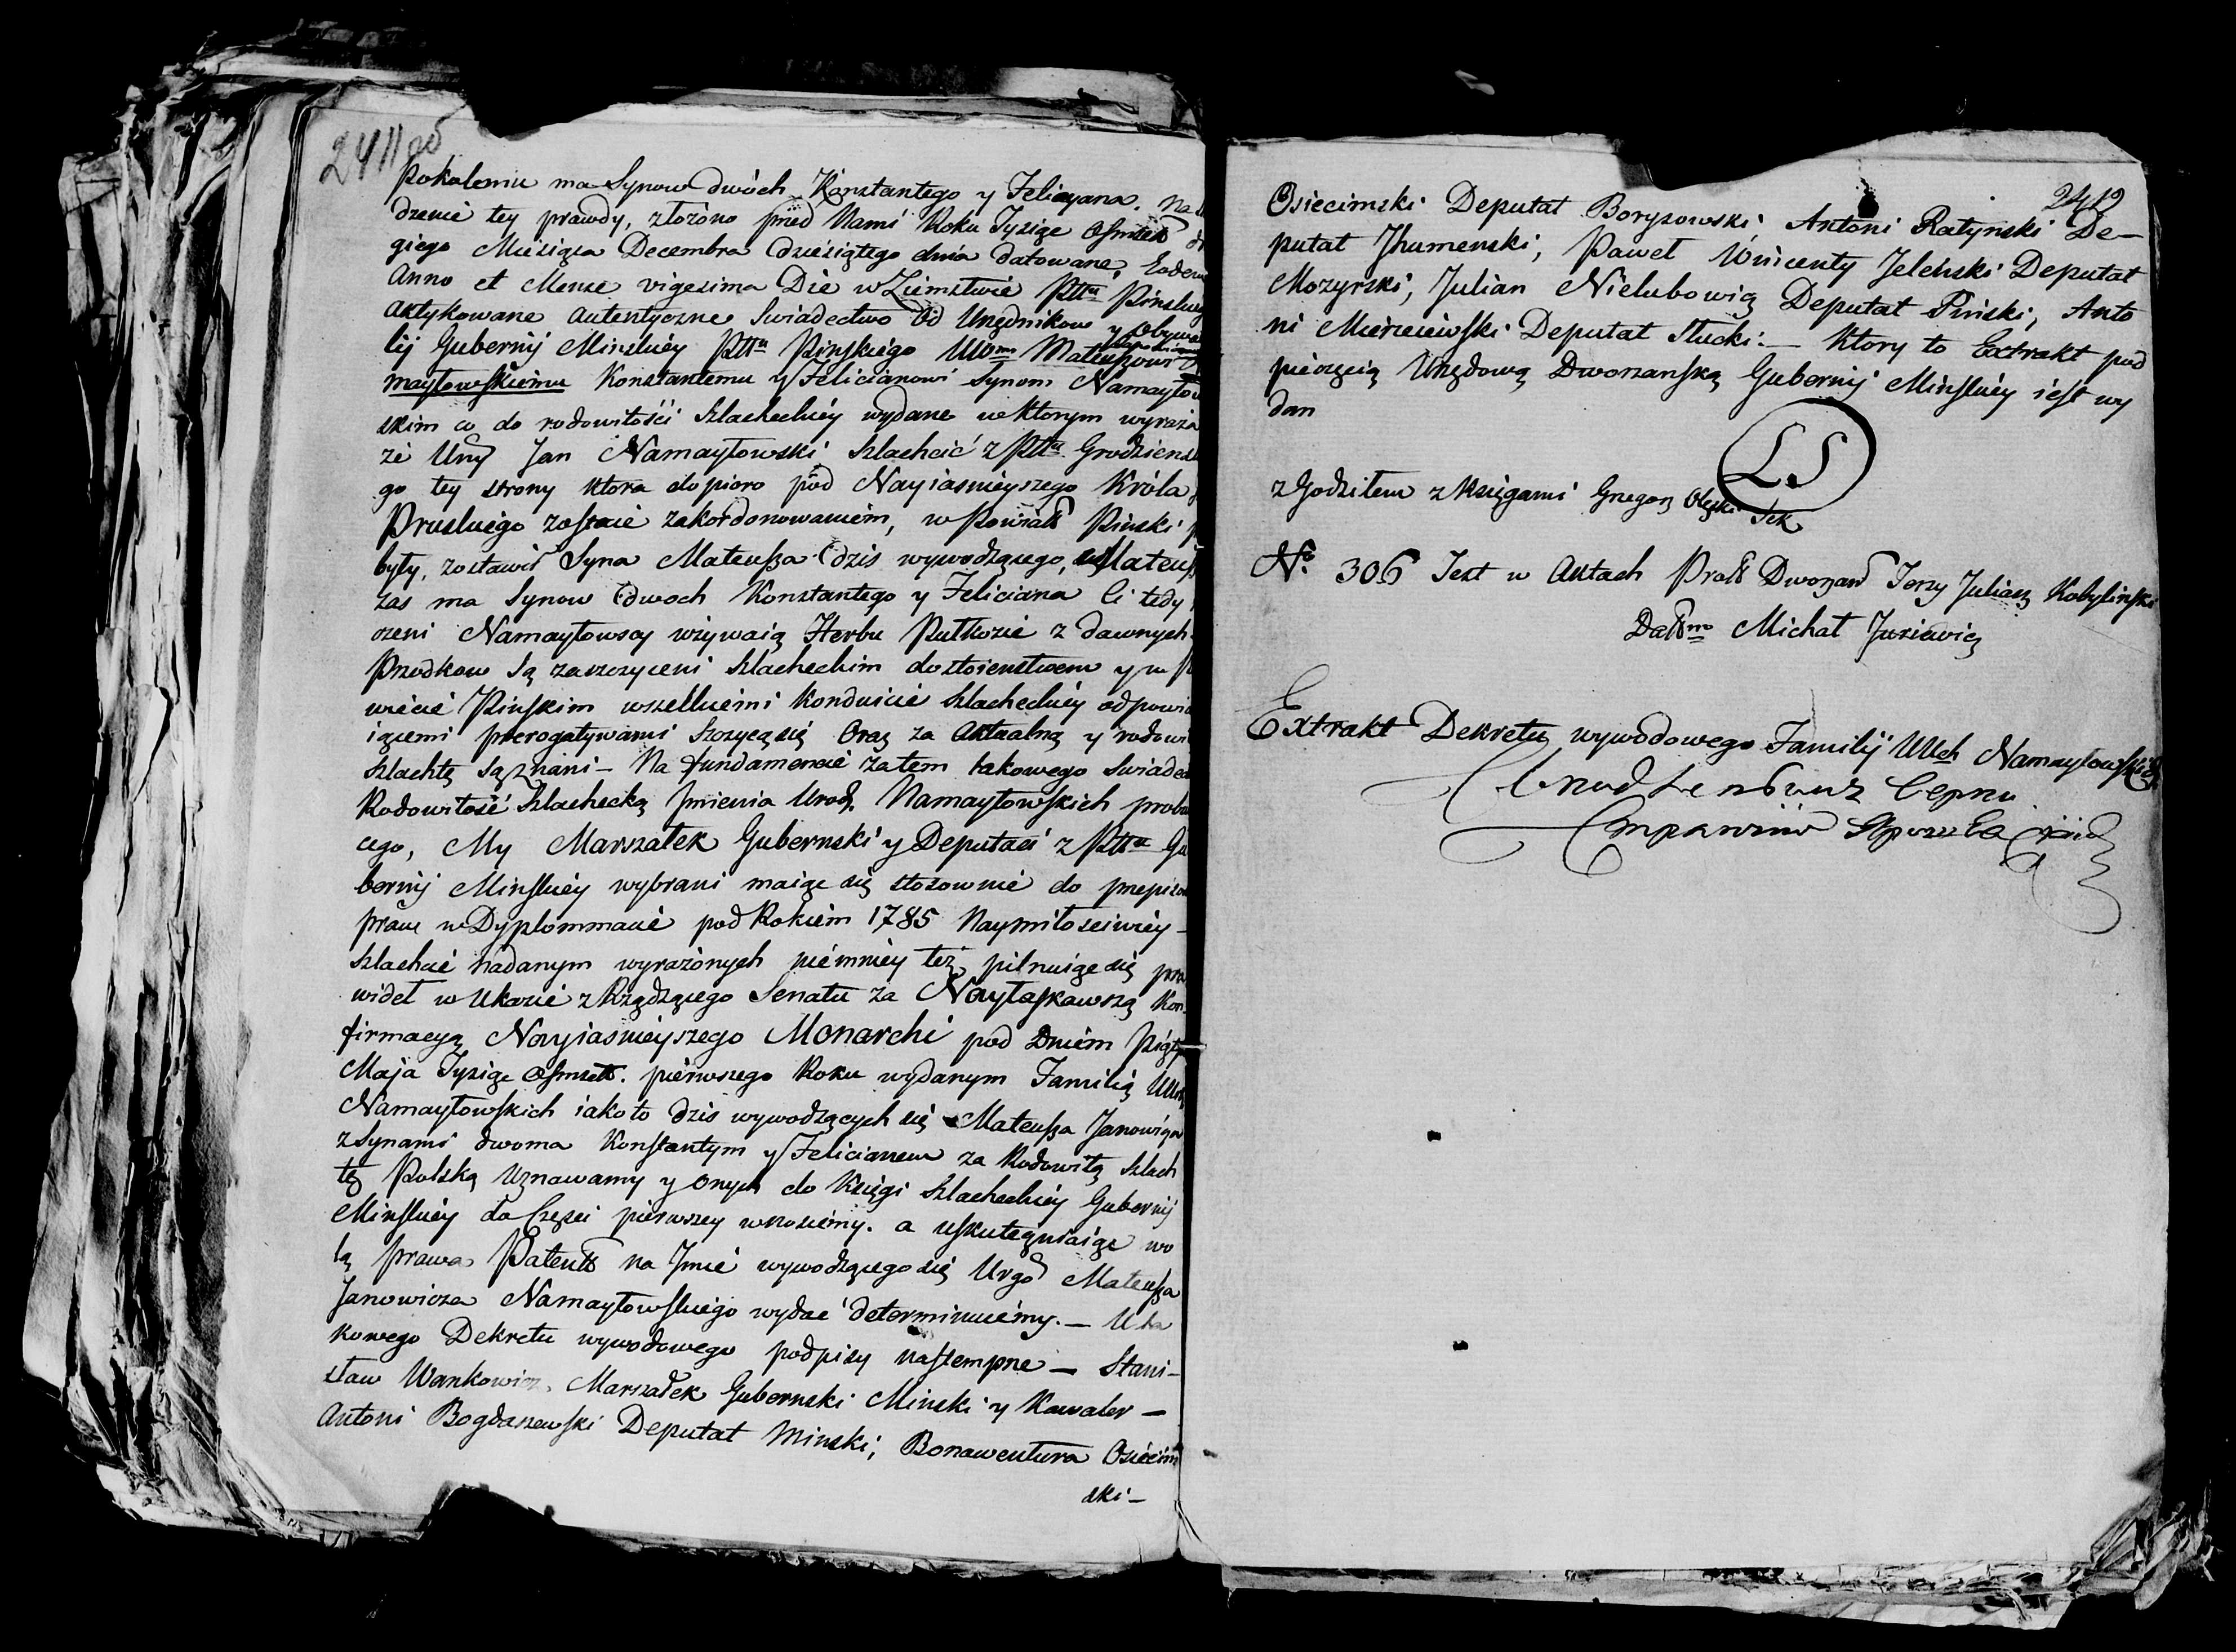 2411 об
Pokoleniu ma Synow dwóch Konstantego y Felicyana. Na
dzenie tey prawdy, złożono przed Nami Roku Tysiąc Ośmset
giego Miesiąca Decembra dziesiątego dnia datowane, Eodem
Anno et Mense vigesima Die w Ziemstwie Pttu Pinskiego
Aktykowane Autentyczne Swiadectwo od Urzędnikow y Obywa
lij Gubernij Minskiey Pttu Pinskiego Ur Mateuszowi
maytowskiemu Konstantemu y Felicianowi Synom Namaytow
skim co do rodowitości Szlacheckiey wydane w ktorym wyraża
że Ur Jan Namaytowski Szlachcić z Pttu Grodziens
go tey strony ktora dopioro pod Nayiasnieyszego Króla
Pruskiego zostaie zakordonowaniem, w Powiatt Pinski
były, zostawił Syna Mateusza dzis wywodzącego, Mateusz
zas ma Synow dwoch Konstantego y Feliciana Ci tedy
czeni Namaytowscy używaią Herbu Putkozie z dawnych
Przodkow są zaszczyceni Szlacheckim dostoienstwem y w P
wiecie Pinskim wszelkiemi Konduicie Szlacheckiey odpowia
iącemi prerogatywami szczycą się Oraz za Aktualną y rodowi
Szlachtę są znani – Na fundamencie zatem takowego Swiadec
Rodowitość Szlachecką Jmienia Urod. Namaytowskich probu
cego, My Marszałek Gubernski y Deputaci z Pttu Gu
bernij Minskiey wybrani maiąc się stosownie do przepisow
praw w Dyplommacie pod Rokiem 1785 Naymiłosciwiey –
Szlachcie nadanym wyrażonych niemniey też pilnuiąc się pra
wideł w Ukazie z Rządzącego Senatu za Nayłaskawszą Kon-
firmacyą Nayiasnieyszego Monarchi pod Dniem Piąty
Maja Tysiąc Ośmsett. pierwszego Roku wydanym Familią
Namaytowskich iako to dzis wywodzących się Mateusza Janowicza
z Synami dwoma Konstantym y Felicianem za Rodowitą Szlach
tę Polską Uznawamy y onych do Księgi Szlacheckiey Gubernij
Minskiey do Częsci pierwszey wnosiemy. a uskuteczniaiąc wo
lą prawa Patentt na Jmie wywodzącego się Urgo Mateusza
Janowicza Namaytowskiego wydać determinuiemy. – U ta
kowego Dekretu wywodowego podpisy nastempne – Stani-
sław Wankowicz Marszałek Gubernski Minski y Kawaler –
Antoni Bogdaszewski Deputat Minski; Bonawentura Osiecim
ski –
2412
Osiecimski Deputat Borysowski; Antoni Ratynski De–
putat Jhumenski, Paweł Wincenty Jelenski Deputat
Mozyrski, Julian Nielubowicz Deputat Pinski, Anto
ni Mierzeiewski Deputat Słucki: – Ktory to Extrakt pod
pieczęcią Urzędową Dworzanską Gubernij Minskiey iest wy
dan
LS
zgodziłem z Księgami Grzegorz Sek
No. 306 Jest w Aktach Jerzy Juliasz Kobylinski
Michał Juriewicz
Extrakt Dekretu wywodowego Familij Namaytowskich